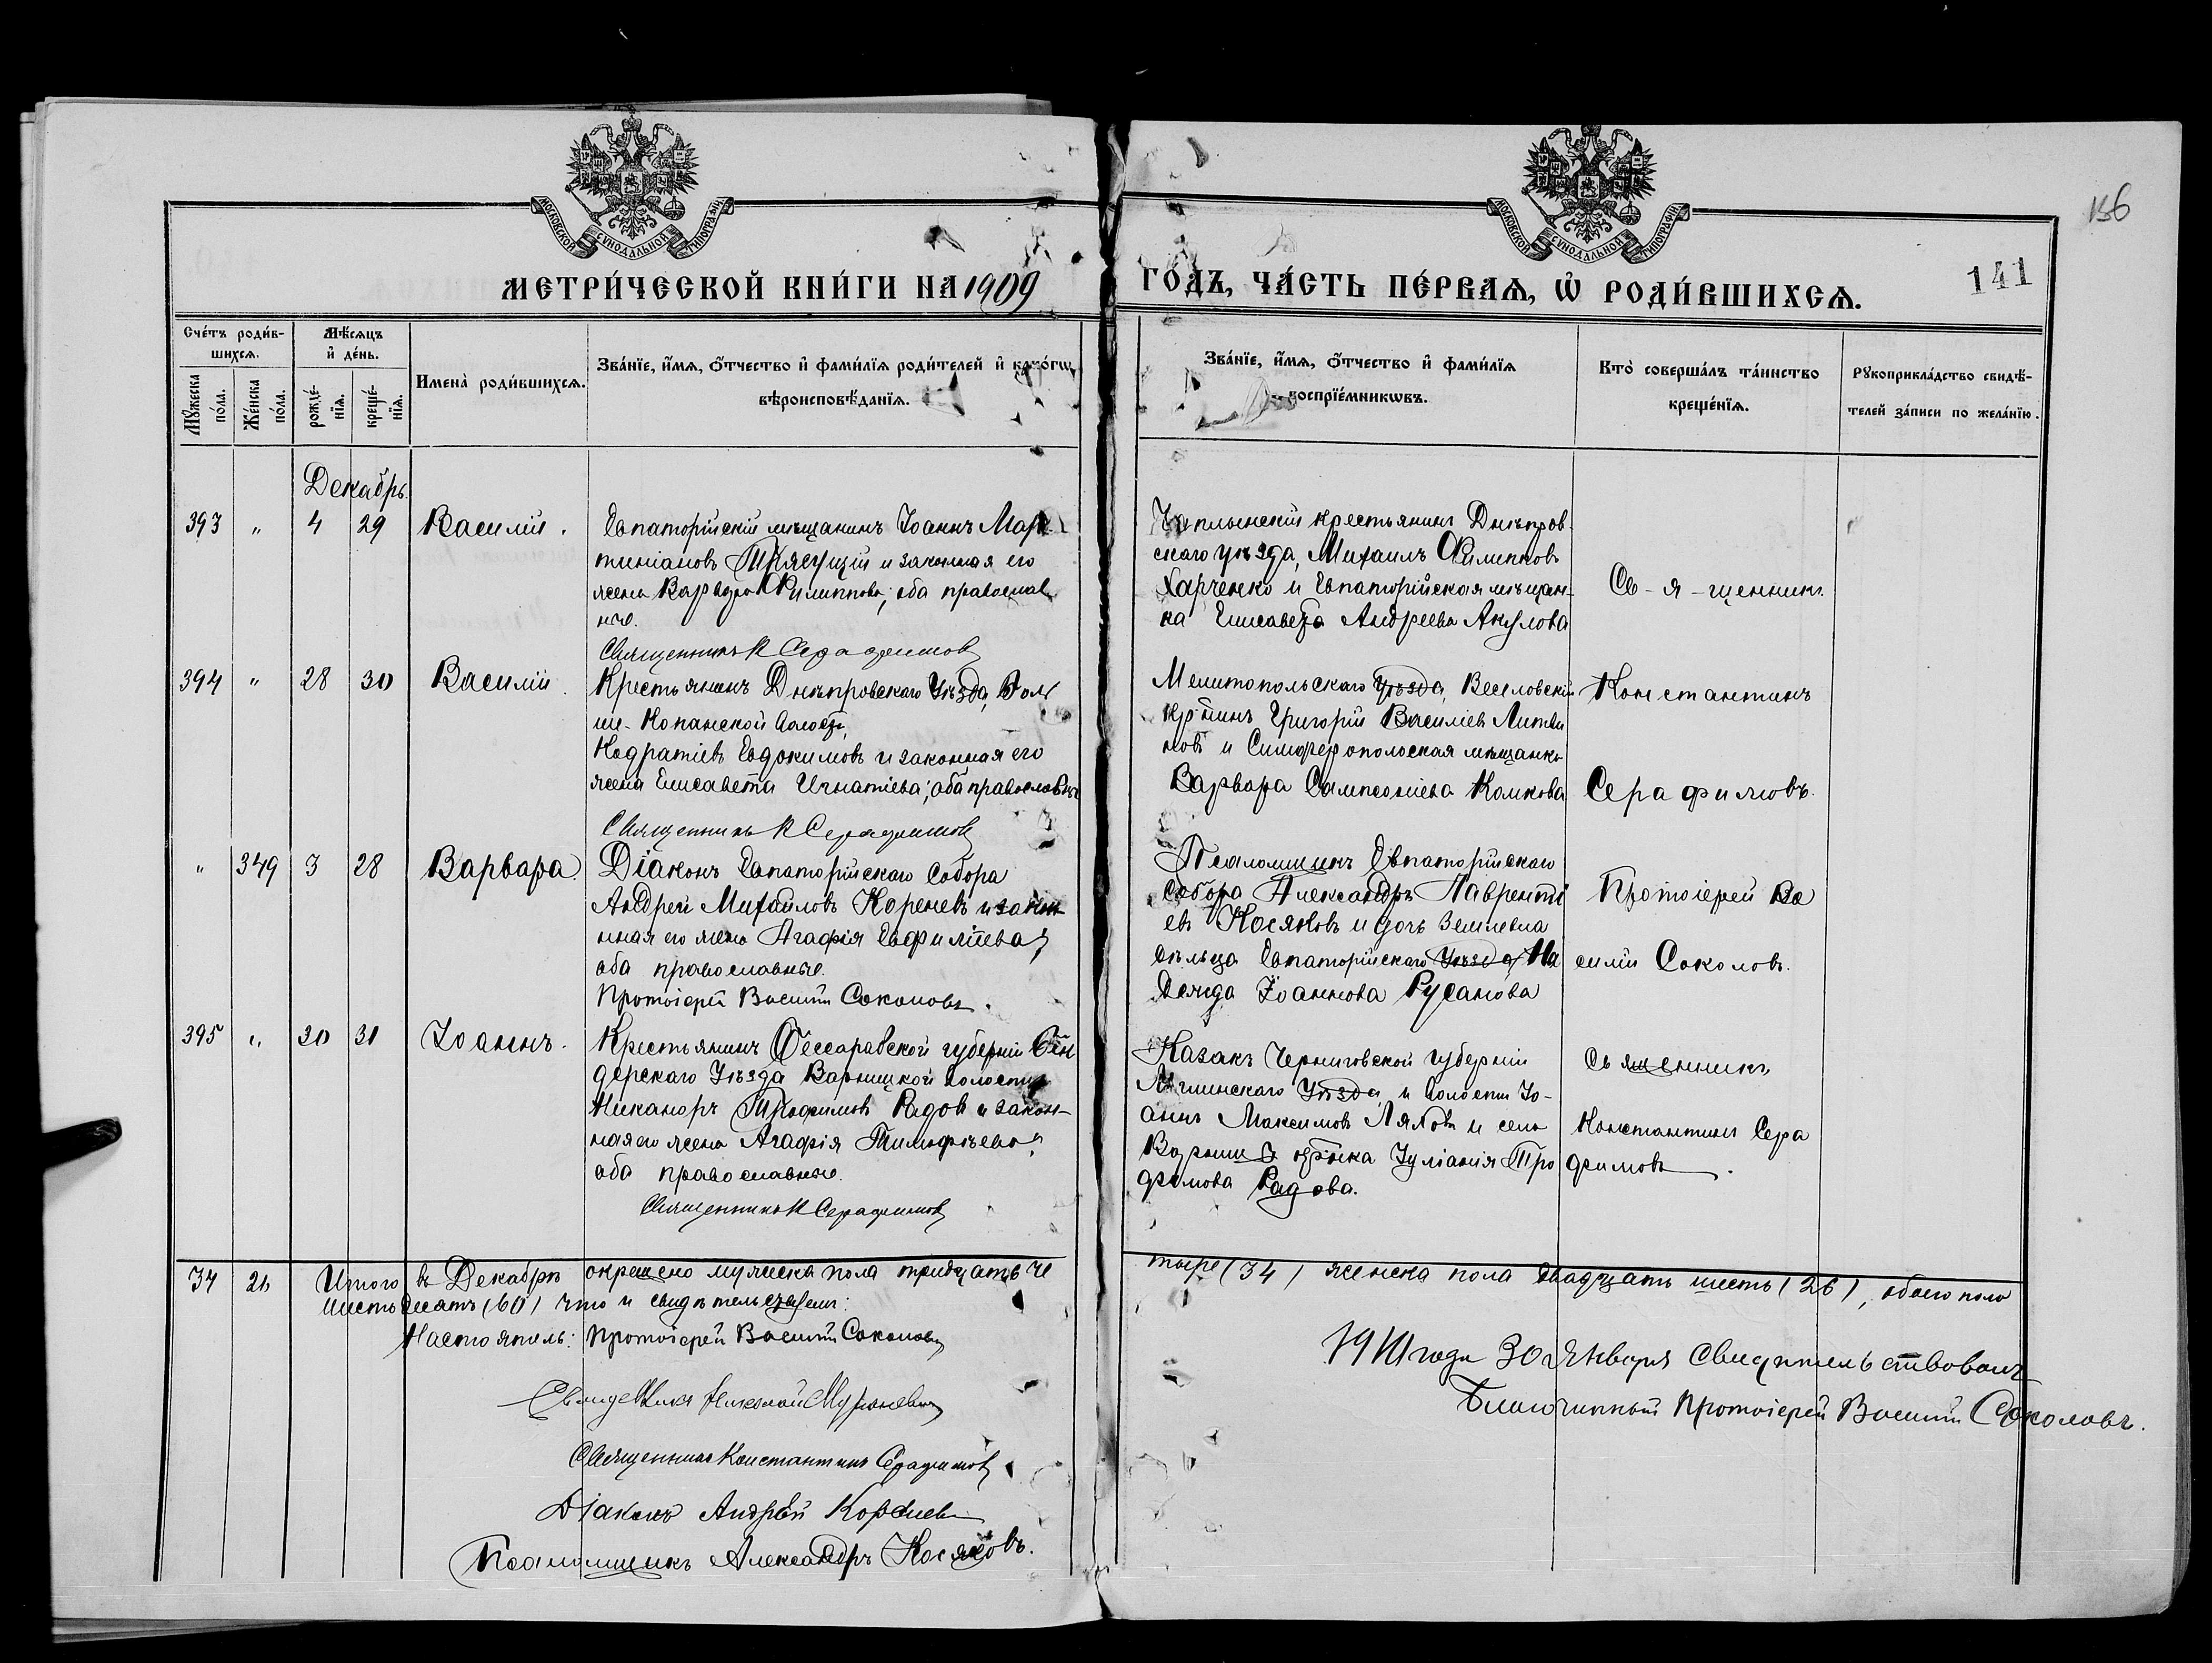 156
МОСКОВСКОЙ СУНОДАЛЬНОЙ ТИПОГРАФІИ
МОСКОВСКОЙ СУНОДАЛЬНОЙ ТИПОГРАФІИ
МЕТРИ́ЧЕСКОЙ КНИ́ГИ НА 1909
ГОДЪ, ЧА́СТЬ ПЕ́РВАѦ, Ѡ РОДИ́ВШИХСѦ.
141
Сче́тъ роди́в-
шихсѧ.
Мꙋ́жеска по́ла.
Же́нска по́ла.
Мѣ́сѧцъ
и҆ де́нь.
рожде́-
нїѧ.
креще́-
нїѧ.
Имена̀ роди́вшихсѧ.
Зва́нїе, и҆́мѧ, ѻ҆́тчество и҆ фами́лїѧ роди́телей и҆ како́гѡ
вѣроисповѣ́данїѧ.
Зва́нїе, и҆́мѧ, ѻ҆́тчество и҆ фами́лїѧ
воспрїе́мникѡвъ.
Кто̀ соверша́лъ та́инство
креще́нїѧ.
Рꙋкоприкла́дство свидѣ́-
телей за́писи по жела́нїю.
Декабрь.
393 " 4 29 Василій.
Евпаторійскій мѣщанинъ Іоаннъ Мар-
тиніановъ и законная его
жена Варвара Филиппова; оба православ
ные.
Священникъ К Серафимовъ
крестьянинъ Днѣпров-
скаго уѣзда, Михаилъ Филипповъ
Харченко и Евпаторійская мѣщан-
ка Елисавета Андреева Акулова
Св-я-щенникъ
394 " 28 30 Василій.
Крестьянинъ Днѣпровскаго Уѣзда, Боль
ше-Копанской волости,
Кодратіевъ Евдокимовъ и законная его
жена Елисавета Игнатіева; оба православные
Священникъ К Серафимовъ
Мелитопольскаго Уѣзда, Веселовскій
кр-нинъ Григорій Василіевъ Литви
новъ и Симферопольская мѣщанка
Варвара Сампсоніева Комкова
Константинъ
Серафимовъ.
" 349 3 28 Варвара.
Діаконъ Евпаторійскаго Собора
Андрей Михаиловъ Кореневъ и закон
нная его жена Агафія;
оба православные.
Протоіерей Василій Соколовъ.
Псаломщикъ Евпаторійскаго
собора Александръ Лаврентіи
евъ Косяковъ и дочь землевла
дѣльца Евпаторійскаго Уѣзда, На
дежда Іоаннова Русанова
Протоіерей Ва
силій Соколовъ.
395 " 30 31 Іоаннъ.
Крестьянинъ Бессарабской губерніи Бен
дерскаго Уѣзда Варницкой волости
Никаноръ Трофимовъ Радовъ и закон-
ная его жена Агафія Тимофѣева;
оба православные.
Священникъ К Серафимовъ
Казакъ Черниговской губерніи
Мглинскаго Уѣзда, и волости Іо-
аннъ Максимовъ и села
Варницы Іуліанія Тро
фимова Радова.
Священникъ
Константинъ Сера
фимовъ.
34 26 Итого въ Декабрѣ окрещено мужеска пола тридцать че
тыре (34) женска пола двадцать шесть (26), обоего пола
шестьдесятъ (60) что и свидѣтельствуемъ:
Настоятель: Протоіерей Василій Соколовъ
Священникъ Николай
Священникъ Константинъ Серафимовъ
Діаконъ Андрей Кореневъ
Псаломщикъ Александръ Косяковъ.
года 30 Января Свидѣтельствовалъ
Благочинный Протоіерей Василій Соколовъ.